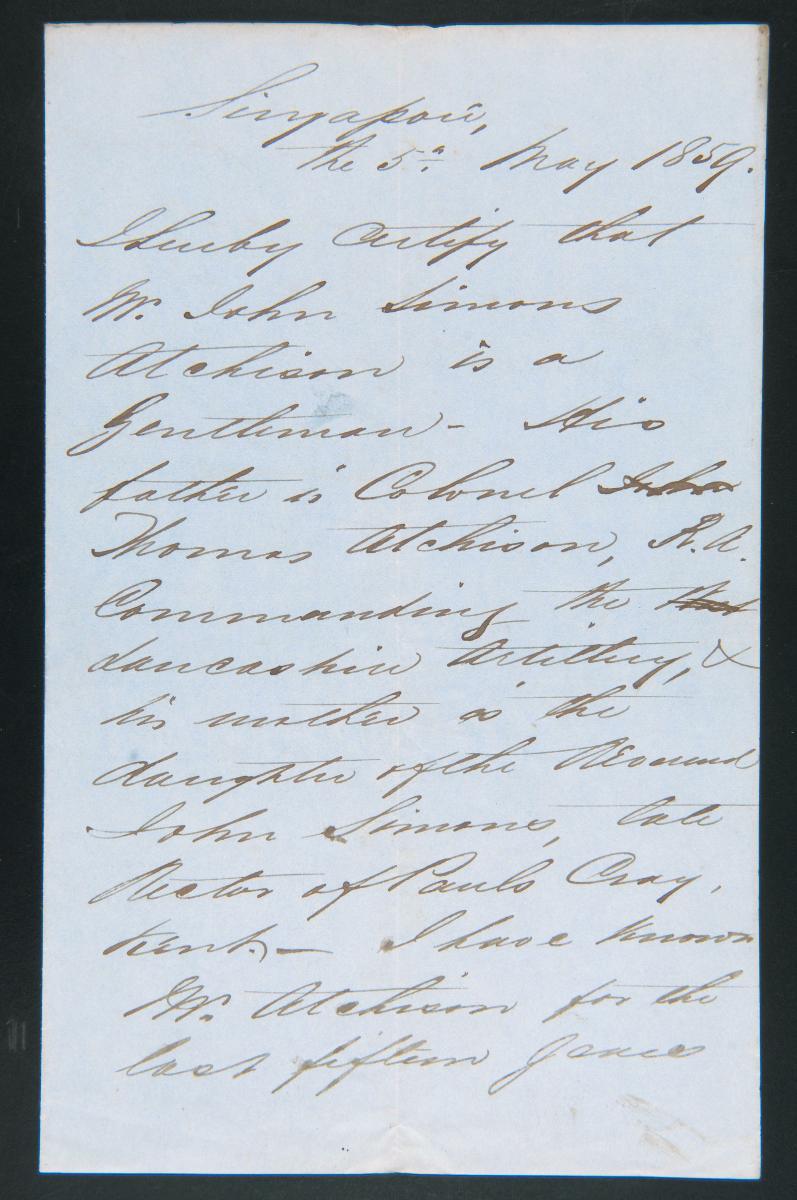 Singapore,
the 5th May 1859.
I hereby Certify that
Mr. John Simons
Atchison is a
Gentleman - His
father is Colonel John
Thomas Atchison, R.A.
Commanding the
Lancashire Artillery, &
his mother is the
daughter of the Reverend
John Simons, late
Rector of Pauls Cray,
Kent. - I have known
Mr. Atchison for the
last fifteen years